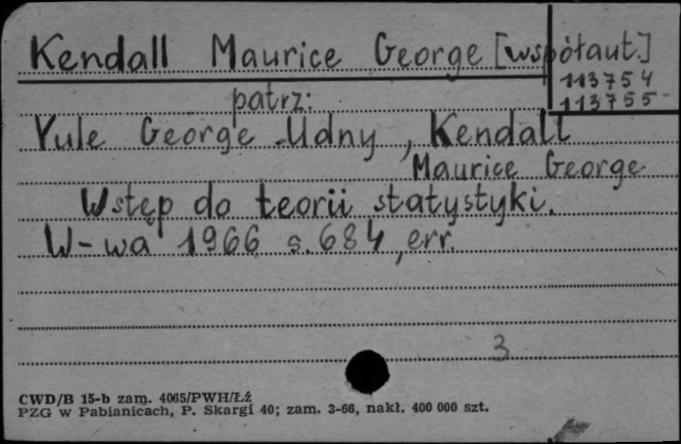 Kendall Maurice George [współaut.]
113754
113755
patrz:
Yule George Udny, Kendall
Maurice George
Wstęp do teorii statystyki.
W-wa 1966 s. 684, err.
3
CWD/B 15-b zam. 4065/PWH/Łź
PZG w Pabianicach, P. Skargi 40; zam. 3-66, nakł. 400 000 szt.